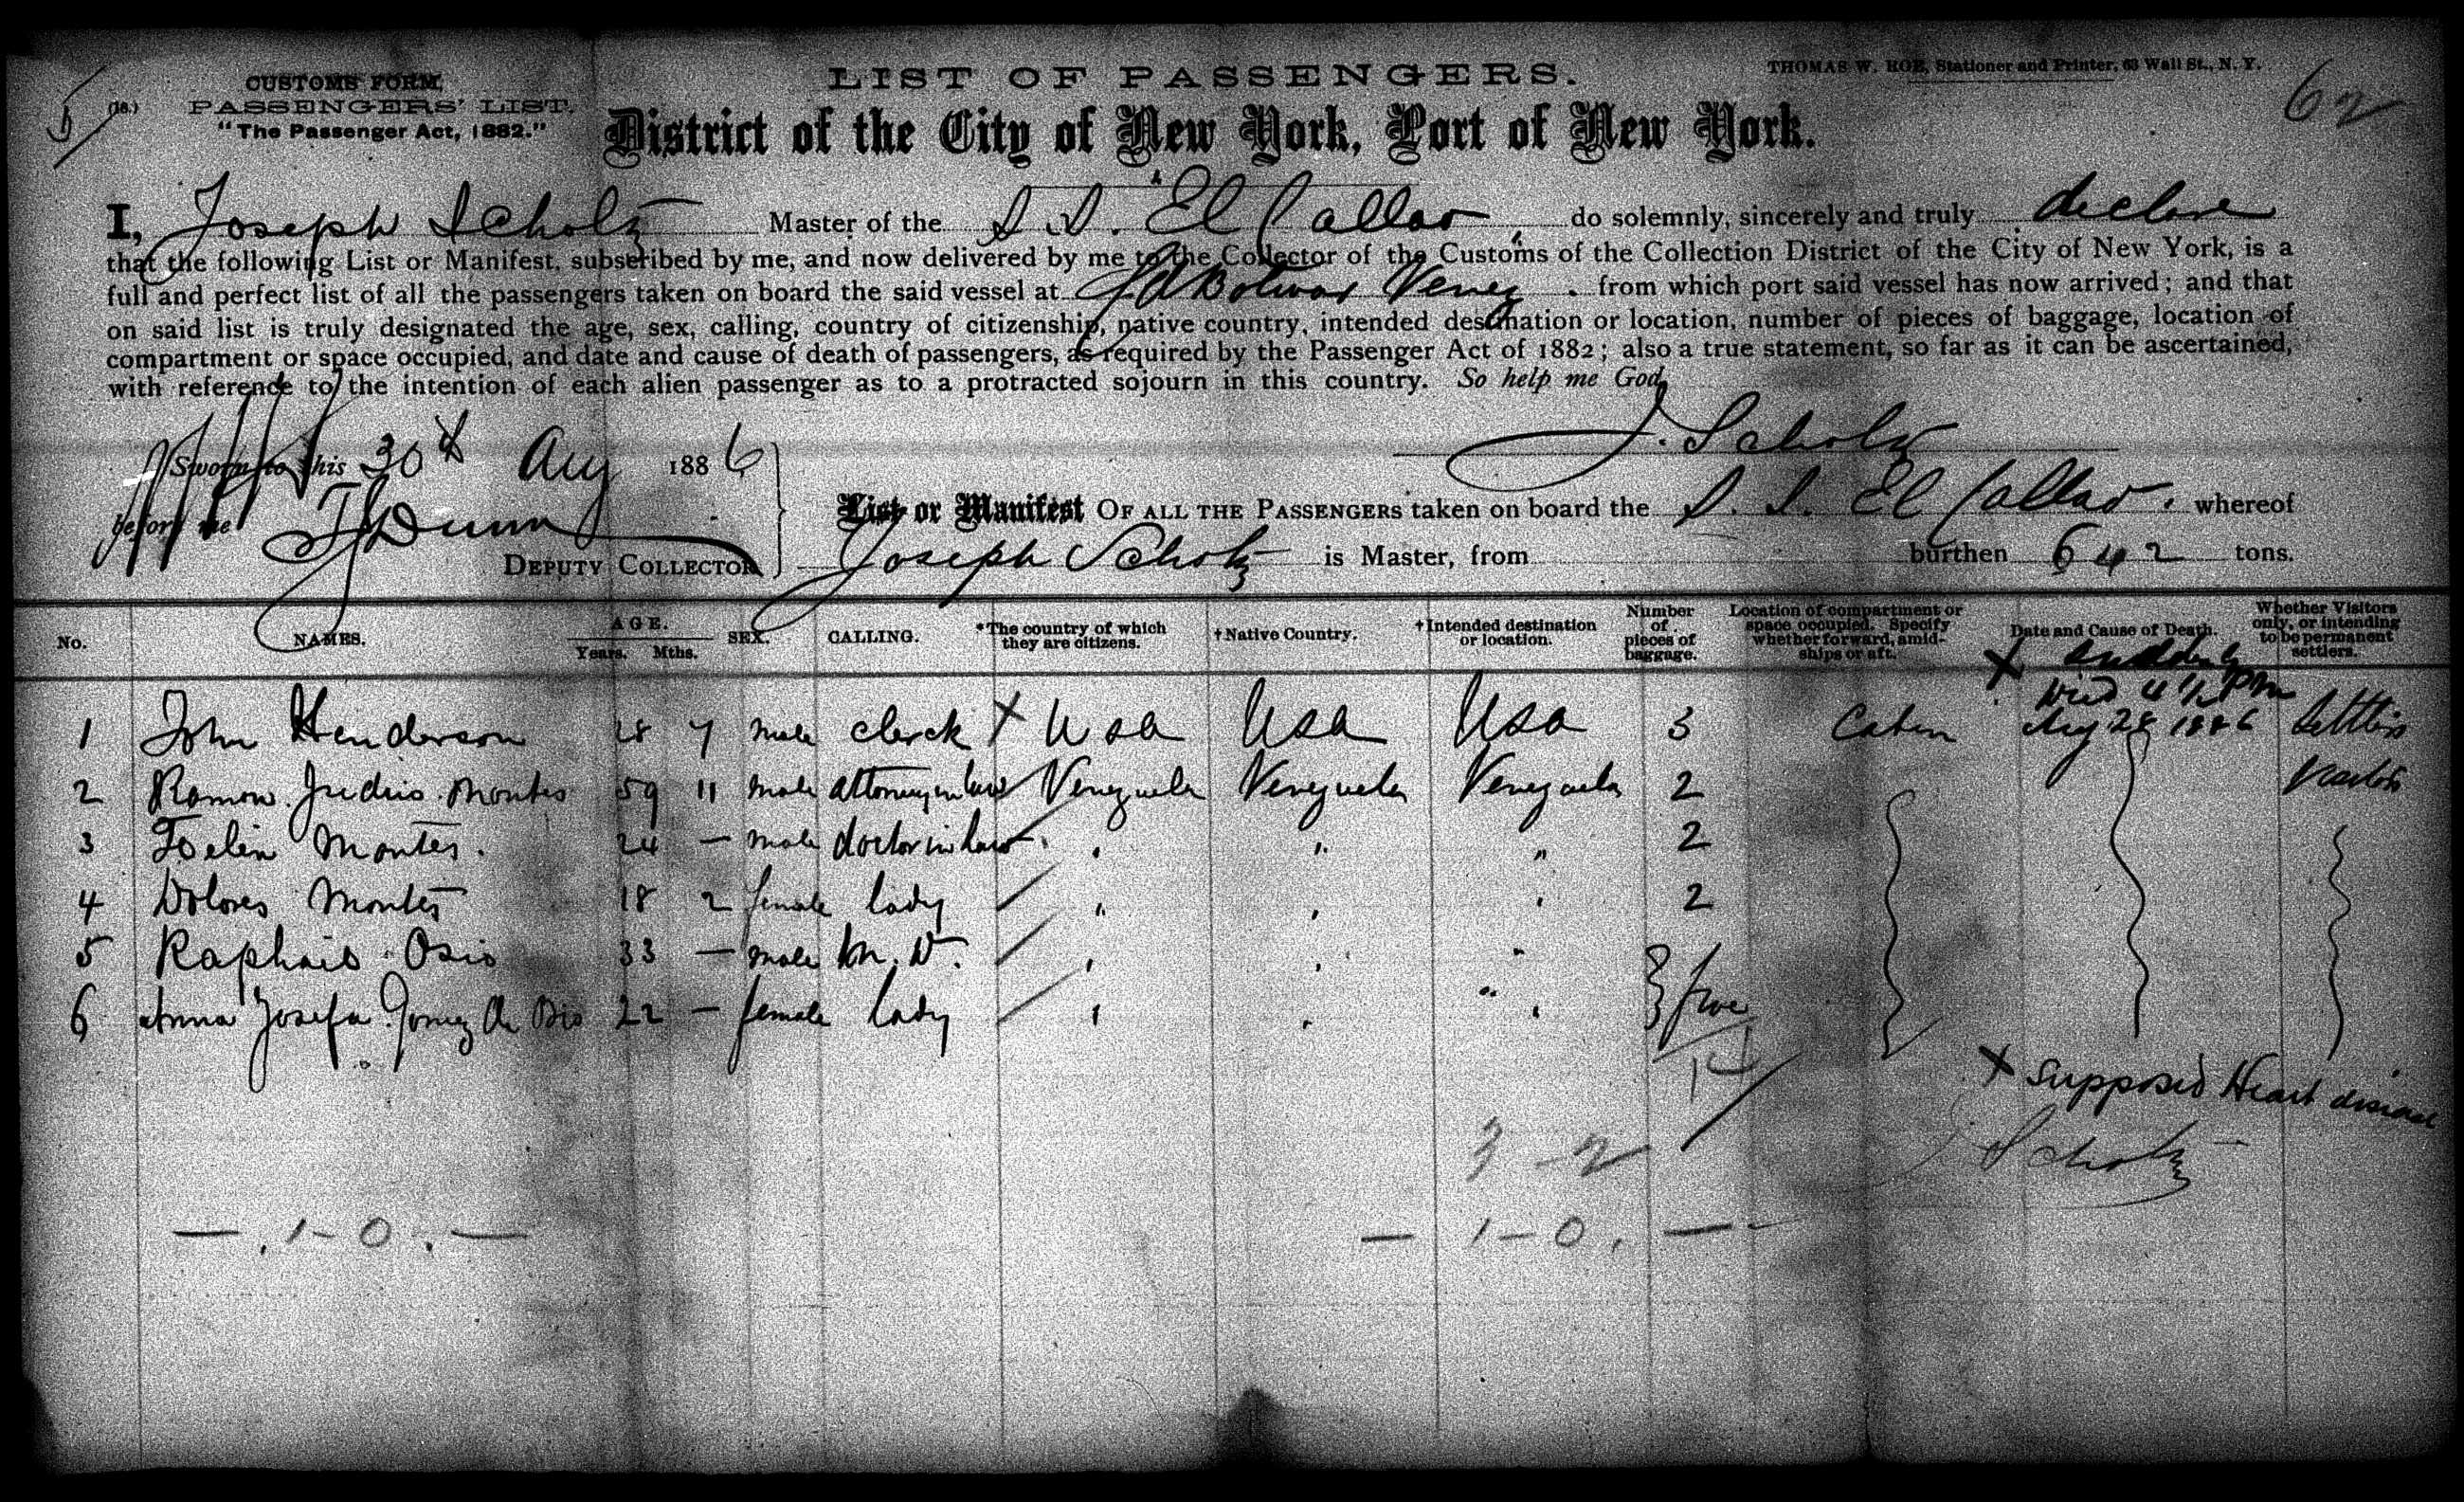 CUSTOMS FORM,
(18.) PASSENGERS' LIST.
"The Passenger Act, 1882."
LIST OF PASSENGERS.
THOMAS W. ROE, Stationer and Printer, 63 Wall St., N. Y.
62
District of the City of New York, Port of New York.
I, Joseph Scholtz Master of the S. S. "El Callao, do solemnly, sincerely and truly declare
that the following List or Manifest, subscribed by me, and now delivered by me to the Collector of the Customs of the Collection District of the City of New York, is a
full and perfect list of all the passengers taken on board the said vessel at Bolivar Venez. from which port said vessel has now arrived; and that
on said list is truly designated the age, sex, calling, country of citizenship, native country, intended destination or location, number of pieces of baggage, location of
compartment or space occupied, and date and cause of death of passengers, as required by the Passenger Act of 1882; also a true statement, so far as it can be ascertained,
with reference to the intention of each alien passenger as to a protracted sojourn in this country. So help me God,
J. Scholtz
Sworn to this 30th Aug 1886
before me Dunn
DEPUTY COLLECTOR
List or Manifest OF ALL THE PASSENGERS taken on board the S. S. El Callao. whereof
Joseph Scholtz is Master, from burthen 642 tons.
No. NAMES. AGE. Years. Mths. SEX. CALLING. *The country of which they are citizens. †Native Country. †Intended destination or location. Number of pieces of baggage. Location of compartment or space occupied. Specify whether forward, amidships or aft. Date and Cause of Death. Whether Visitors only, or intending to be permanent settlers.
X Suddenly
Died 4 1/2 pm
1 John Henderson 28 7 male clerk X Usa Usa Usa 3 Cabin Aug 28 1886 Settlers
2 Ramon Montes 59 11 male attorney in law Venezuela Venezuela Venezuela 2
3 Montes. 24 — male doctor in law " " " 2
4 Dolores Montes 18 2 female lady " " " 2
5 Osio 33 — male M. D. " " "
6 Anna Josefa Gomez de Osio 22 — female lady " " " five
14
X Supposed Heart disease
Scholtz
3 - 2
— . 1 - 0 . — — 1 - 0 . —